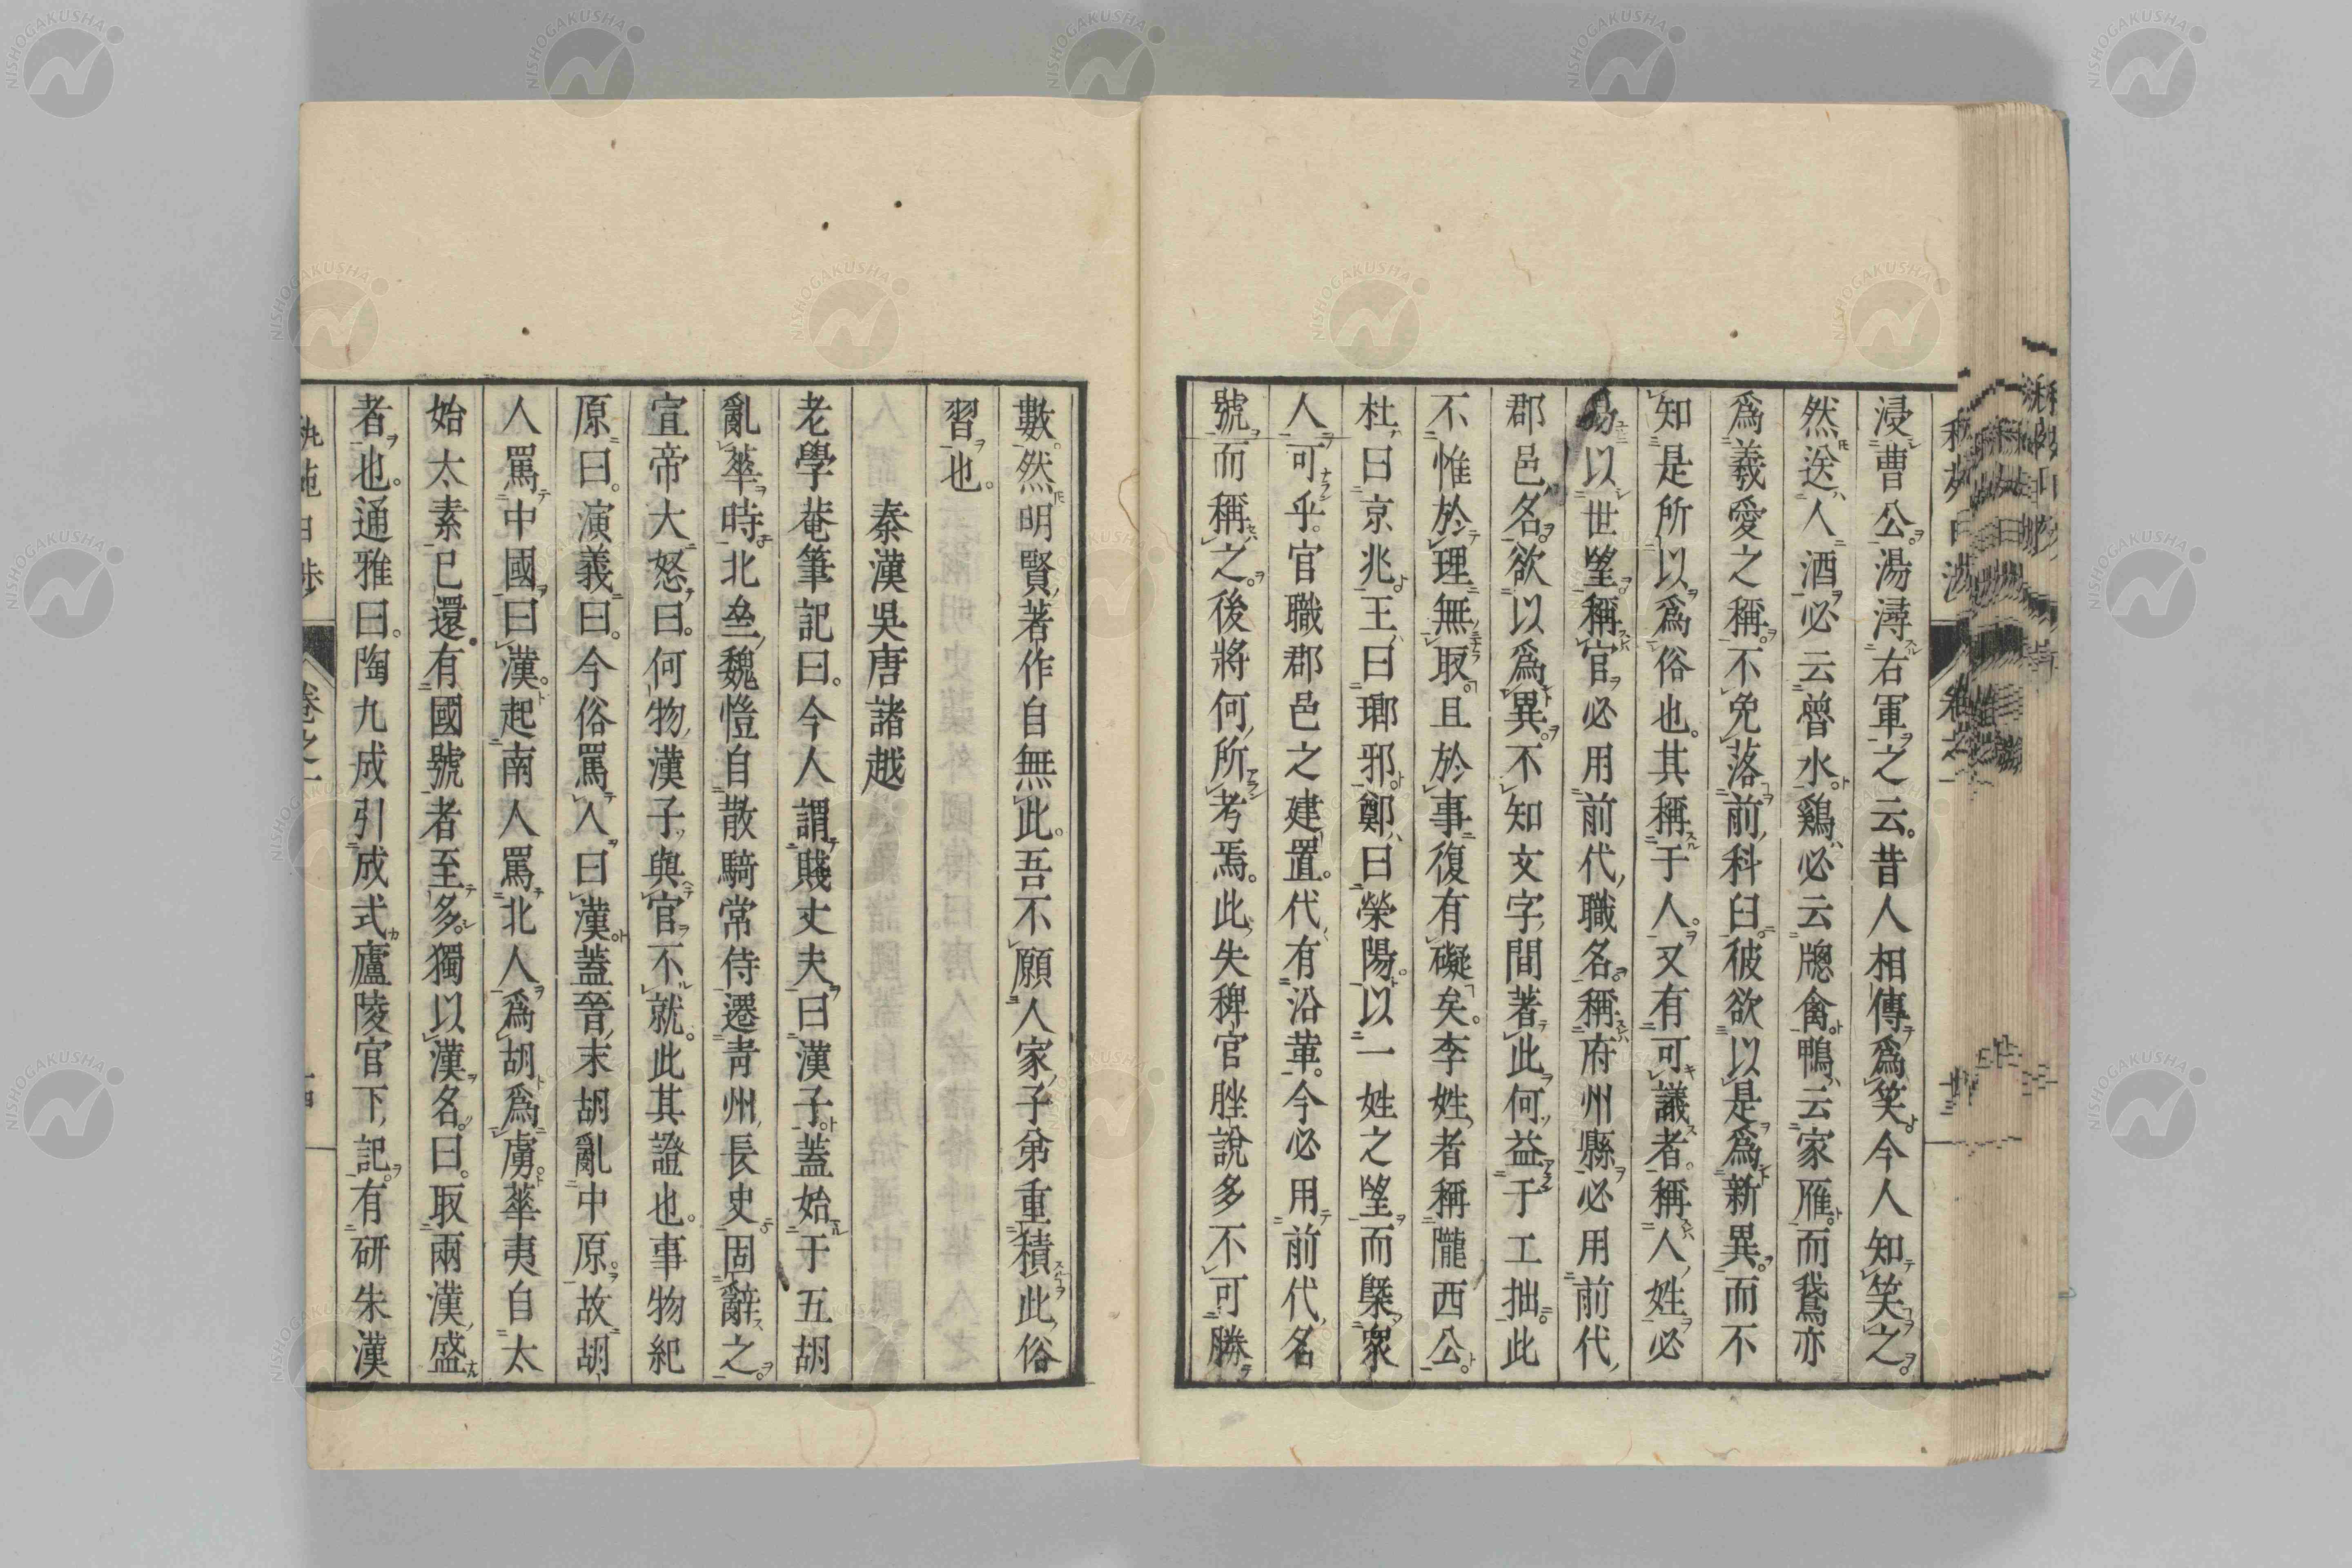 浸曹公湯潯右軍之云昔人相傳爲笑今人知笑之
然送人酒必云曾水鷄必云牕禽鴨云家雁而鵞亦
爲義愛之稱不免落前科臼彼欲以是爲新異而不
知是所以爲俗也其稱于人又有可議者稱人姓必
易以世望稱官必用前代職名稱府州縣必用前代
郡邑名欲以爲異不知文字間著此何益于工拙此
不惟於理無取且於事復有礙矣李姓者稱隴西公
杜曰京兆王曰瑯邪鄭曰榮陽以一姓之望而槩衆
人可乎官職郡邑之建置代有沿革今必用前代名
號而稱之後將何所考焉此失稗官脞說多不可勝
數然明賢著作自無此吾不願人家子弟重積此俗
習也
秦漢吳唐諸越
老學菴筆記曰今人謂賤丈夫曰漢子蓋始于五胡
亂華時北亝魏愷自散騎常侍遷靑州長史固辭之
宣帝大怒曰何物漢子與官不就此其證也事物紀
原曰演義曰今俗罵人曰漢蓋晉末胡亂中原故胡
人罵中國曰漢起南人罵北人爲胡爲虜華夷自太
始太素已還有國號者至多獨以漢名曰取兩漢盛
者也通雅曰陶九成引成式廬陵官下記有研朱漢
卷之一